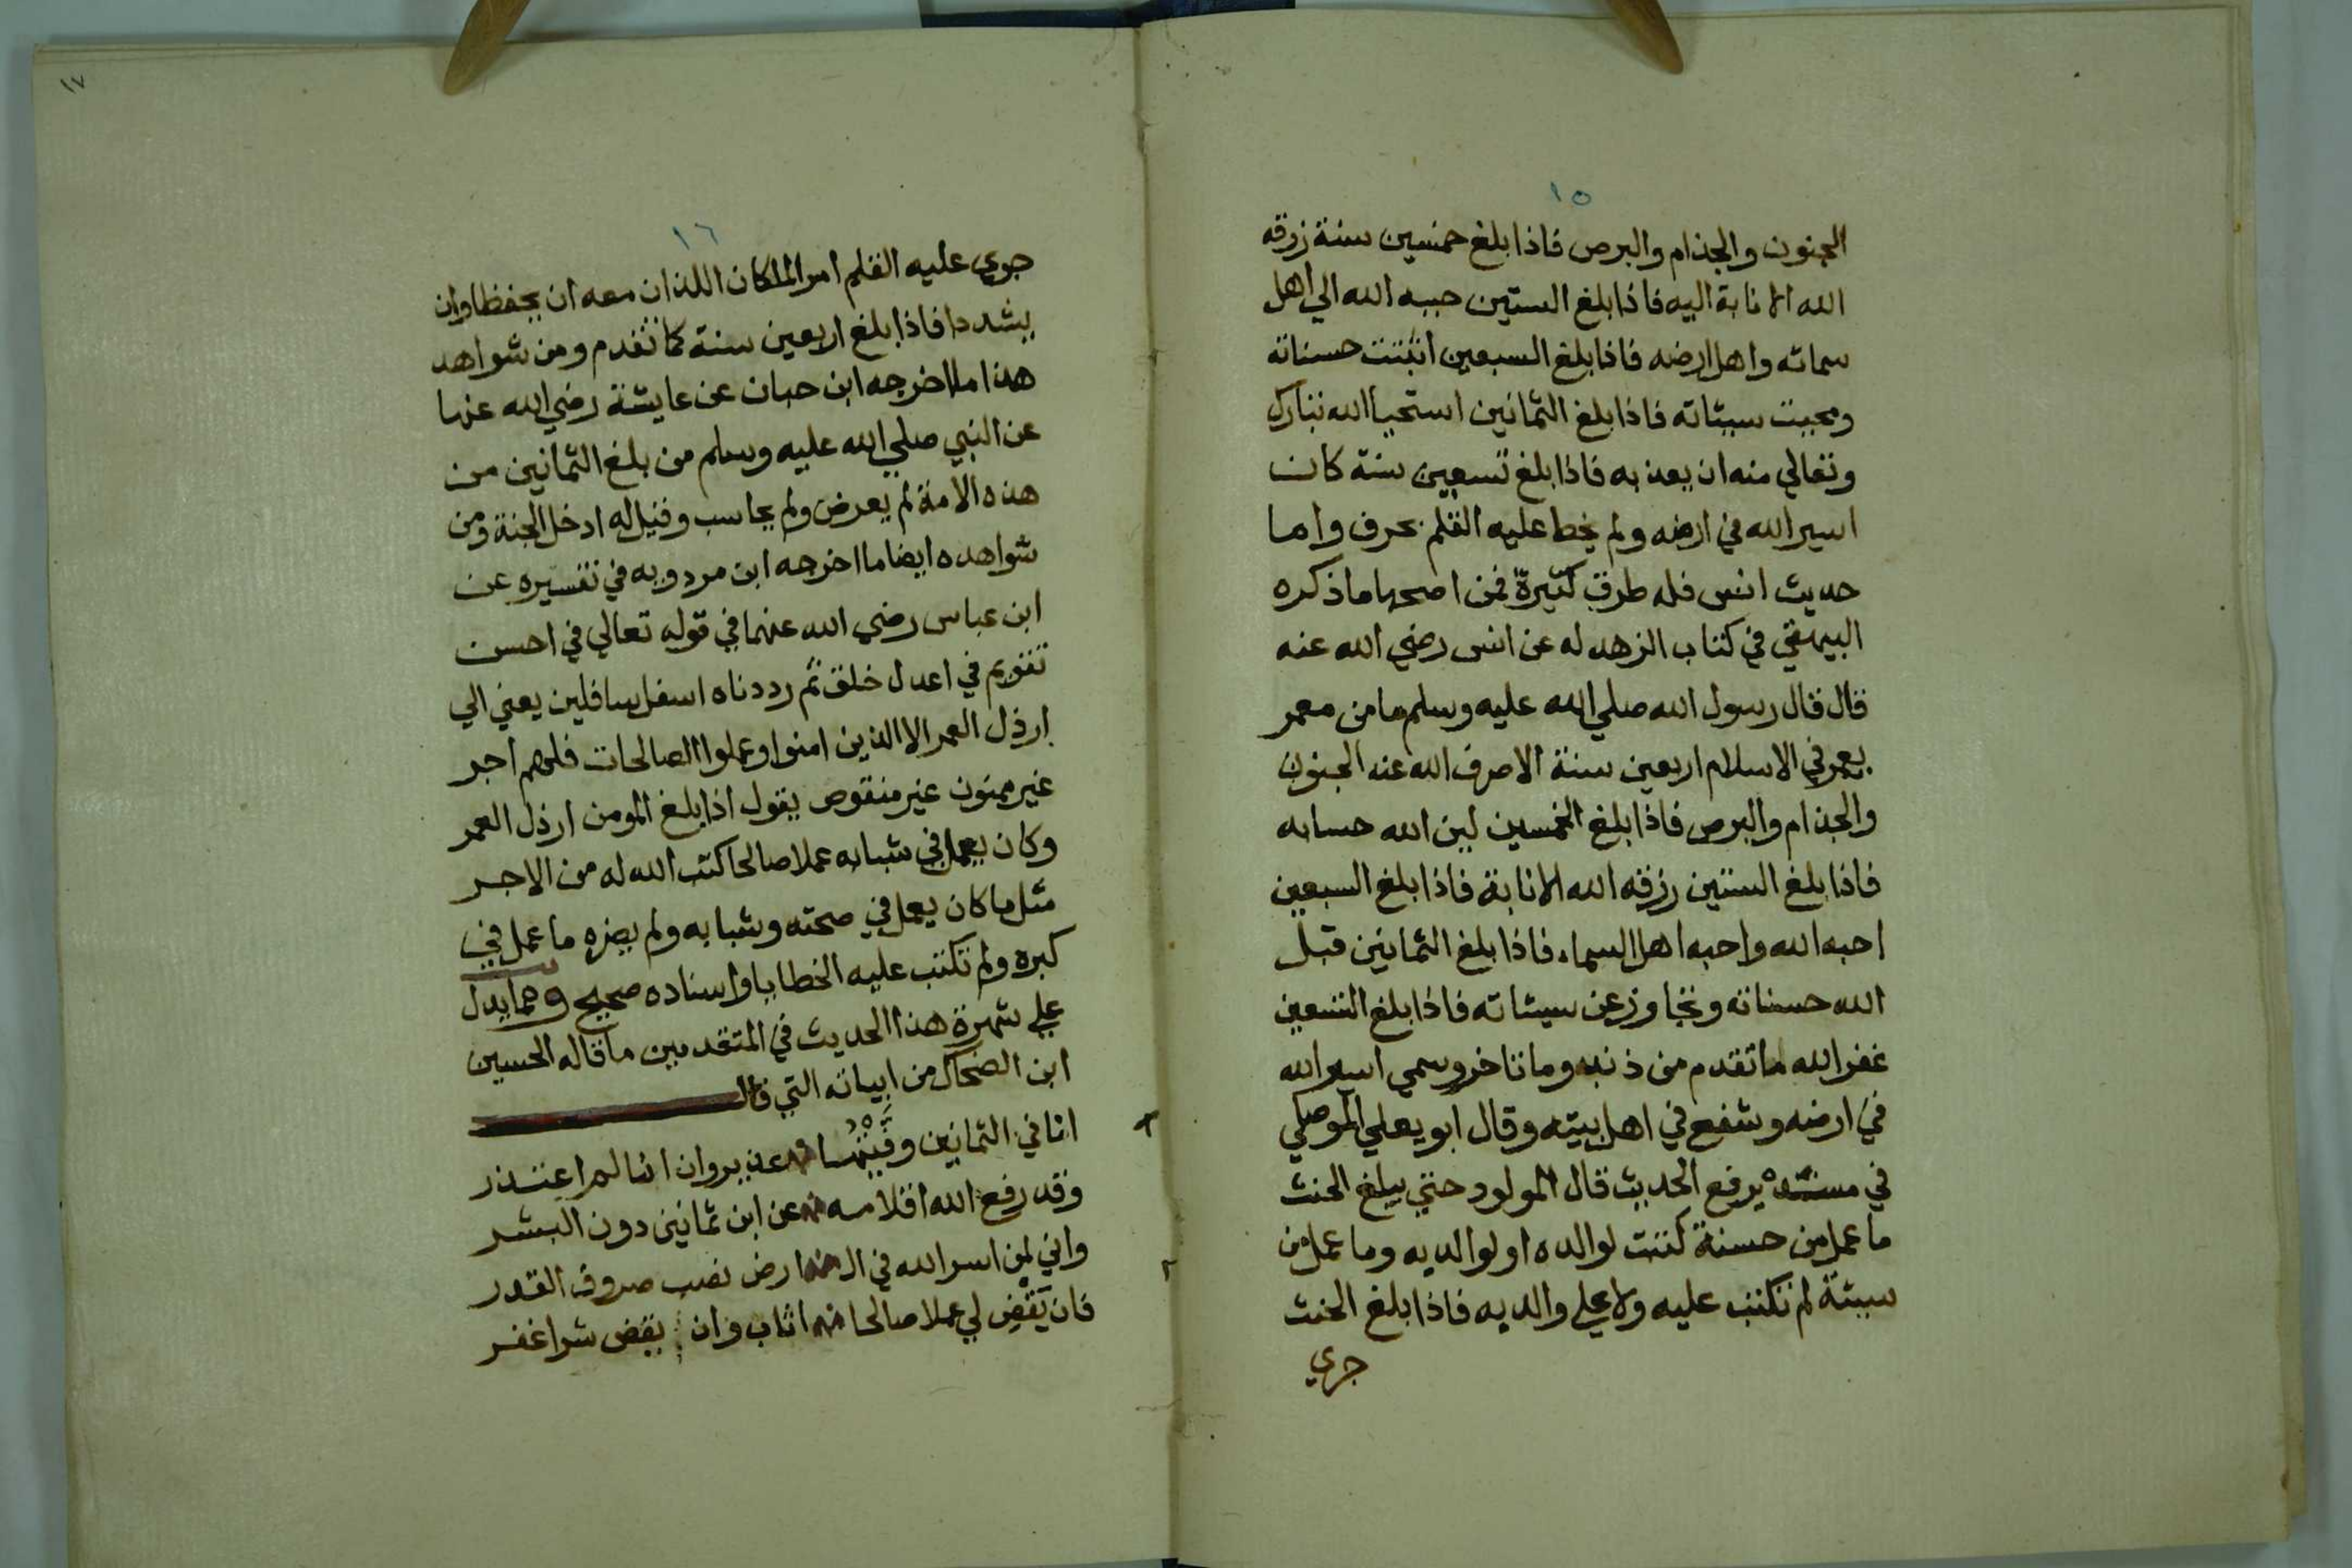 ١٥
الجنون والجذام والبرص فاذا بلغ خمسين سنة رزقه
الله الانابة اليه فاذا بلغ الستين حببه الله الي اهل
سمائه واهل ارضه فاذا بلغ السبعين اثبتت حسناته
ومحيت سيئاته فاذا بلغ الثمانين استحيا الله تبارك
وتعالي منه ان يعذبه فاذا بلغ تسعين سنة كان
اسير الله في ارضه ولم يخط عليه القلم بحرف واما
حديث انس فله طرق كثيرة فمن اصحها ما ذكره
البيهقي في كتاب الزهد له عن انس رضي الله عنه
قال قال رسول الله صلي الله عليه وسلم ما من معمر
يعمر في الاسلام اربعين سنة الا صرف الله عنه الجنون
والجذام والبرص فاذا بلغ الخمسين لين الله حسابه
فاذا بلغ الستين رزقه الله الانابة فاذا بلغ السبعين
احبه الله واحبه اهل السماء فاذا بلغ الثمانين قبل
الله حسناته وتجاوز عن سيئاته فاذا بلغ التسعين
غفر الله ما تقدم من ذنبه وما تاخر وسمي اسير الله
في ارضه وشفع في اهل بيته وقال ابو يعلي الموصلي
في مسنده يرفع الحديث قال المولود حتي يبلغ الحنث
ما عمل من حسنة كتبت لوالده او لوالديه وما عمل من
سيئة لم تكتب عليه ولا علي والديه فاذا بلغ الحنث
جري
١٧
١٦
جري عليه القلم امر الملكان اللذان معه ان يحفظا وان
يشددا فاذا بلغ اربعين سنة كما تقدم ومن شواهد
هذا ما اخرجه ابن حبان عن عايشة رضي الله عنها
عن النبي صلي الله عليه وسلم من بلغ الثمانين من
هذه الامة لم يعرض ولم يحاسب وقيل له ادخل الجنة ومن
شواهده ايضا ما اخرجه ابن مردويه في تفسيره عن
ابن عباس رضي الله عنهما في قوله تعالي في احسن
تقويم في اعدل خلق ثم رددناه اسفل سافلين يعني الي
ارذل العمر الا الذين امنوا وعملوا الصالحات فلهم اجر
غير ممنون غير منقوص يقول اذا بلغ المومن ارذل العمر
وكان يعمل في شبابه عملا صالحا كتب الله له من الاجر
مثل ما كان يعمل في صحته وشبابه ولم يضره ما عمل في
كبره ولم تكتب عليه الخطايا واسناده صحيح ومما يدل
علي شهرة هذا الحديث في المتقدمين ما قاله الحسين
ابن الضحاك من ابياته التي قال
انا في الثمانين وفيتها عذير وان انا لم اعتذر
وقد رفع الله اقلامه عن ابن ثمانين دون البشر
واني لمن اسر الله في ال ارض نصب صروف القدر
فان يقض لي عملا صالحا اثاب وان يقض شرا غفر